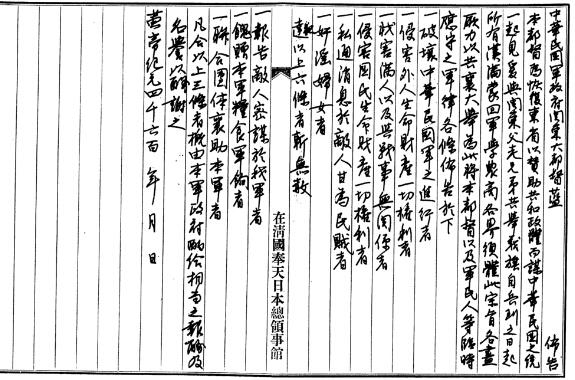 中華民國軍政府関東大都督藍　佈告
本部督為恢復東省以贊助共和政體而謀中華民國之統
一起見爰與関東父老兄弟共舉義旗自告到之日起
所有漢滿蒙回軍學農商各界須體此宗旨各盡
聯力以共襄大舉為此將本部督以及軍民人等臨時
應守之軍律各條佈告於下
一破壞中華民國軍之進行者
一侵害外人生命財産一切権利者
一戕害滿人以及與戰事無関係者
一侵害國民生命財産一切権利者
一私通消息於敵人甘為民賊者
一奸淫婦女者
違以上六條者斬無赦
在淸國奉天日本總領事館
一報告敵人密謀於我軍者
一餽贈本軍糧食軍餉者
一聯合團体襄助本軍者
凡合以上三條者概由本軍政府酌給相當之報酬及
名譽以酬謝之
黄帝紀元四千六百　年　月　日